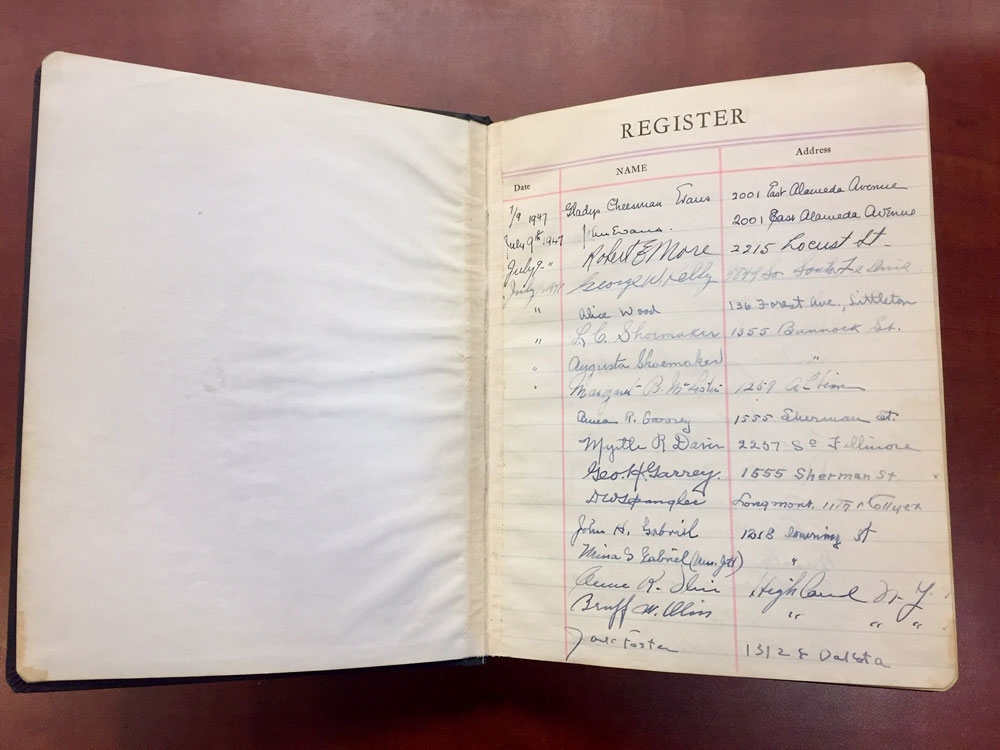 REGISTER
Date NAME Address
7/9 1947 Gladys Cheesman Evans 2001 East Alameda Avenue
July 9th 1947 John Evans. 2001 East Alameda Avenue
July 9 - " Robert E More 2215 Locust St.
July George W Kelly So Santa Fe Drive
" Alice Wood 136 Forest Ave., Littleton
" L. C. Shoemaker 1355 Bannock St.
" Augusta Shoemaker "
" Margaret B. 1259
Anna R. Garrey 1555 Sherman St.
Myrtle R Davis 2257 So Fillmore
Geo. H. Garrey. 1555 Sherman St.
D W Spangler Longmont. 11th & Collyer
John H. Gabriel 1318 Downing St
Mina S Gabriel (Mrs. J H) "
Anne K. Olin Highland N. Y.
Bruff W. Olin " " "
Jack Foster 1312 E Dakota